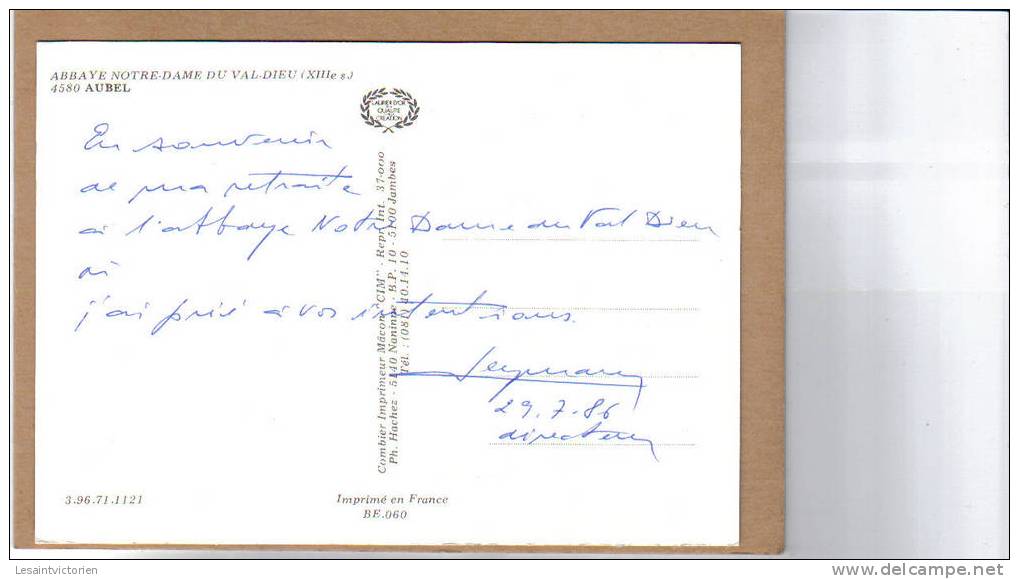 ABBAYE NOTRE-DAME DU VAL-DIEU (XIIIe s.)
4580 AUBEL
LAURIER D'OR
DE LA
QUALITÉ
CRÉATION
En souvenir
de ma retraite
à l'abbaye Notre Dame du Val Dieu
où
j'ai prié à vos intentions.
29.7.86
directeur
Combier Imprimeur Mâcon "CIM" - Repr. Int. 37-000
Ph. Hachez - 5140 Naninne - B.P. 10 - 5100 Jambes
Tél. : (081) 40.14.10
3.96.71.1121
Imprimé en France
BE.060
Lesaintvictorien
www.delcampe.net